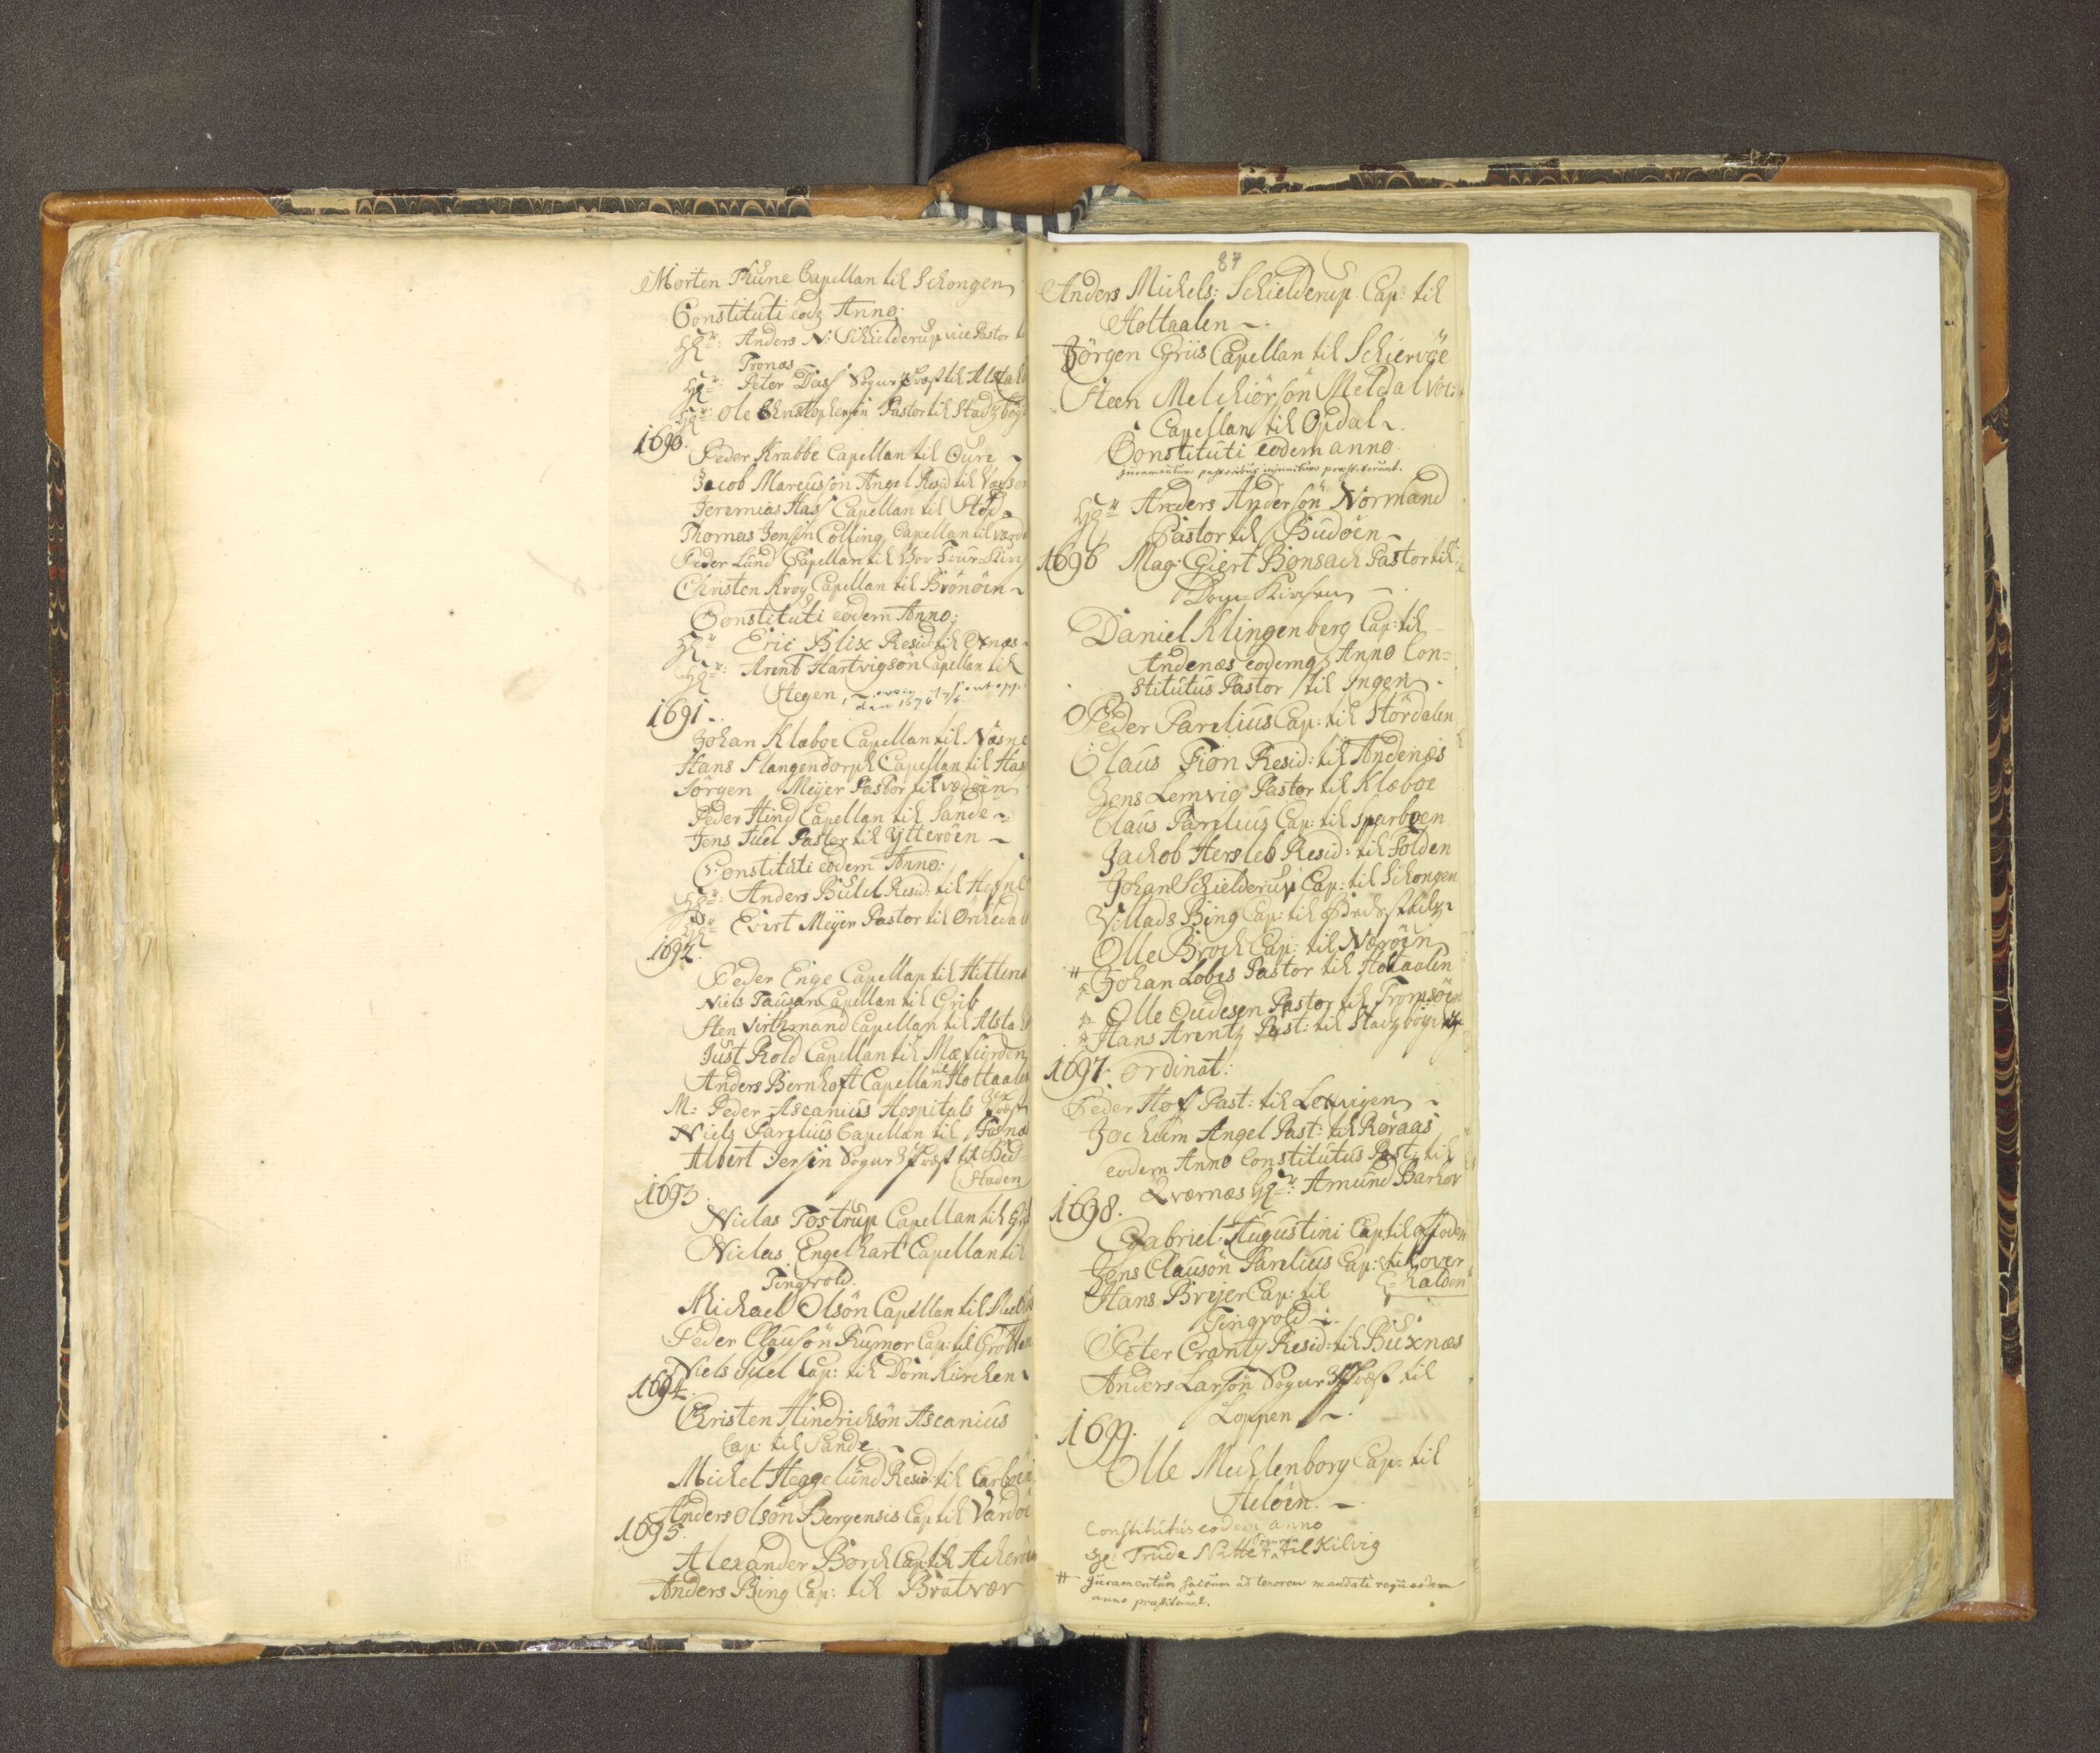 Morten Thune Capellan til Schongen
Constituti eodz Anno:
Hr: Anders N: Schielderup vice Pastor
Tronæs
Hr: Peter Dass Sogne Præst til Alstaho
Hr: Ole Christophersön Pastor til Stadzböÿ
1690.
Peder Krabbe Capellan til Oure
Jacob Marcusön Angel Resid til
Jeremias Hass Capellan til Stod
Thomas Jensön Colling Capellan til Værda
Peder Lund Capellan til Vor Frue Kirch
Christen Krog Capellan til Brönöen
Constituti eodem Anno:
Hr Eric Blix Resid: til Oxnæs
Hr: Arent Hartvigsön Capellan til
Stegen
1691.
Johan Klæboe Capellan til Næsne
Hans Slangendorph Capellan til Has
Jörgen Meÿer Pastor til Vedöen
Peder Hind Capellan til Sande
Jens Juel Pastor til Ytteröen
Constituti eodem Anno:
Hr: Anders Bulel Resid: til
Hr Evert Meÿer Pastor til Örchedal
1692.
Peder Enge Capellan til Hitteren
Niels Tausan Capellan til Grib
Sten Wirthmand Capellan til Alstah
Just Rold Capellan til Mæfiorden
Anders Bernhoft Capellan til Hottaalen
M: Peder Ascanius Hospitals Præst
Niels Parelius Capellan til Fosnæ
Albert Jersin Sogne Præst til Bed
Staden
1693.
Niclas Tostrup Capellan til
Niclas Engelhart Capellan til
Tingvold.
Michael Olsön Capellan til
Peder Clausön Rumor Cap: til Grötten
Niels Juel Cap: til Dom Kirchen
1694.
Christen Hindrichsön Ascanius
Cap: til Sande
Michel Heggelund Resid: til Carlsöen
Anders Olsön Bergensis Cap til Vardöe
1695.
Alexander Borch Cap: til Acheröen
Anders Bing Cap: til Bratvær
87
Anders Michels: Schielderup Cap: til
Holtaalen
Jörgen Griis Capellan til Schiervöe
Steen Melchiörsön Meldal Vic:
Capellan til Opdal
Constituti eodem anno.
Juramentum pastoribus injunctum præstiterunt.
Hr Anders Andersön Normand
Pastor til Budöen
1696 Mag: Giert Bonsach Pastor til
Dom-Kirken
Daniel Klingenberg Cap: til
Andenæs eodemq Anno Con=
stitutus Pastor til Ingen
Peder Parelius Cap: til Stördalen
Claus Fiön Resid: til Andenæs
Jens Lemvig Pastor til Klæboe
Claus Parelius Cap: til Sparboen
Jachob Hersleb Resid: til Folden
Johan Schielderup Cap: til Schongen
Villads Bing Cap: til
Olle Broch Cap: til Næröen
# Johan Lobes Pastor til Holtaalen
# Olle Oudesen Pastor til Tromsöen
# Hans Arentz Past: til Stadzböÿ
1697. ordinat:
Peder Hof Past: til Lenvigen
Jochum Angel Past: til Röraas
eodem Anno Constitutus Past. til
Qværnæs Hr: Amund Barhov
1698.
Gabriel Augustini Cap til
Jens Clausön Parelius Cap: til over
Halden
Hans Breÿer Cap: til
Tingvold
Peter Crantz Resid: til Buxnæs
Anders Larsön Sogne Præst til
Loppen
1699.
Olle Mechlenborg Cap: til
Helöen.
Constitutus eodem anno
Hr Trude Nitter til Kilvig
# Juramentum suum ad tenorem mandati regii eodem
anno præstiterunt.